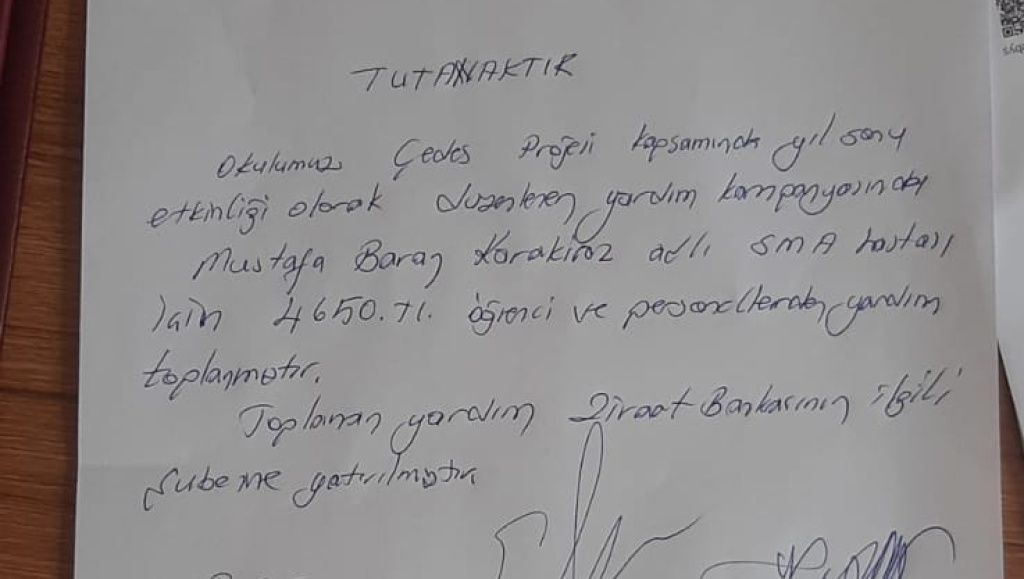 TUTANAKTIR
Okulumuz Çedes Projesi kapsamında yıl sonu
etkinliği olarak düzenlenen yardım kampanyasında
Mustafa Baran Karakiraz adlı SMA hastası
için 4650.TL. öğrenci ve personellerden yardım
toplanmıştır.
Toplanan yardım Ziraat Bankasının ilgili
şubesine yatırılmıştır.